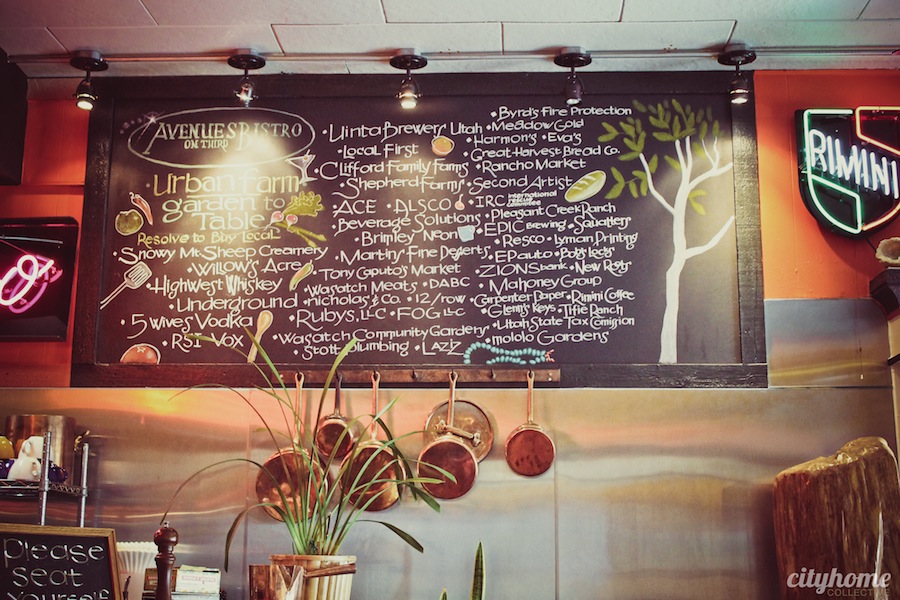 AVENUES BISTRO
ON THIRD
Urban Farm
garden to
Table
Resolve to Buy Local
Snowy Mt. Sheep Creamery
Willow's Acre
Highwest Whiskey
Underground
5 Wives Vodka
RSI Vox
Uinta Brewers Utah
Local First
Clifford Family Farms
Shepherd Farms
ACE ALSCO
Beverage Solutions
Brimley Neon
Martins' Fine Desserts
Tony Caputo's Market
Wasatch Meats DABC
nicholas & Co. 12/row
Rubys, LLC FOG LLC
Wasatch Community Gardens
Stott Plumbing LAZZ
Byrd's Fire Protection
Meadow Gold
Harmon's Eva's
Great Harvest Bread Co.
Rancho Market
Second Artist
IRC international rescue
Pleasant Creek Ranch
EPIC Brewing Squatters
Resco Lyman Printing
EP auto
ZIONS bank
Mahoney Group
Carpenter Paper Rimini Coffee
Glenn's Keys
Utah State Tax Comission
mololo Gardens
RIMINI
Please
Seat
yourself
cityhome
COLLECTIVE